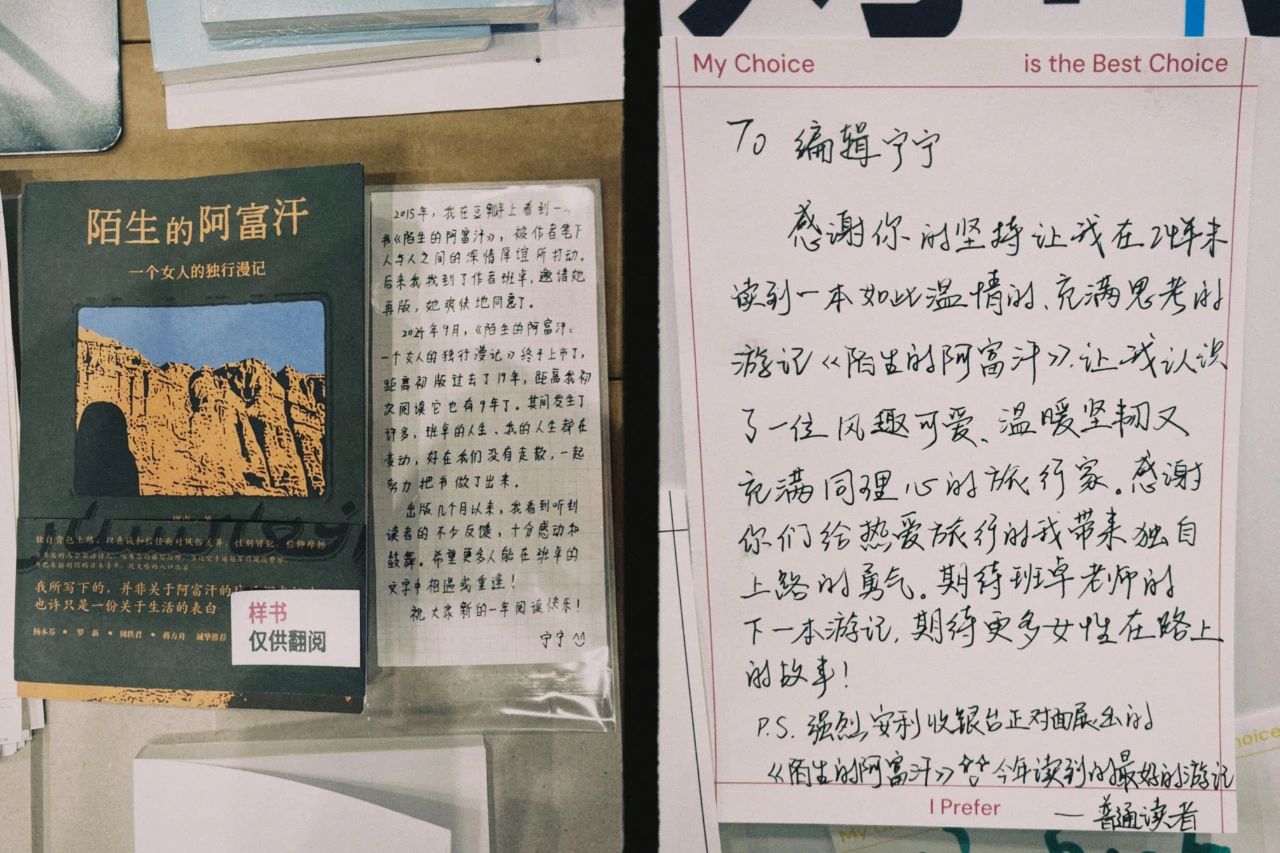 陌生的阿富汗
一个女人的独行漫记
独自背包上路，以真诚和信任面对风俗差异、性别日记、信仰摩擦
我所写下的，并非关于阿富汗的
也许只是一份关于生活的表白
杨本芬 • 罗新 • 周轶君 • 蒋方舟 诚挚推荐
样书
仅供翻阅
2015年，我在豆瓣上看到一
书《陌生的阿富汗》，被作者笔下
人与人之间的深情厚谊所打动。
后来我找到了作者班卓，邀请她
再版，她爽快地同意了。
2024年9月，《陌生的阿富汗：
一个女人的独行漫记》终于上市了，
距离初版过去了19年，距离我初
次阅读它也有9年了。其间发生了
许多，班卓的人生、我的人生都在
变动，好在我们没有走散，一起
努力把书做了出来。
出版几个月以来，我看到听到
读者的不少反馈，十分感动和
鼓舞。希望更多人能在班卓的
文字中相遇或重逢！
祝大家新的一年阅读快乐！
宁宁
My Choice is the Best Choice
To 编辑宁宁
感谢你的坚持让我在24年末
读到一本如此温情的、充满思考的
游记《陌生的阿富汗》，让我认识
了一位风趣可爱、温暖坚韧又
充满同理心的旅行家。感谢
你们给热爱旅行的我带来独自
上路的勇气。期待班卓老师的
下一本游记，期待更多女性在路上
的故事！
P.S. 强烈安利收银台正对面展出的
《陌生的阿富汗》 今年读到的最好的游记
I Prefer
——普通读者